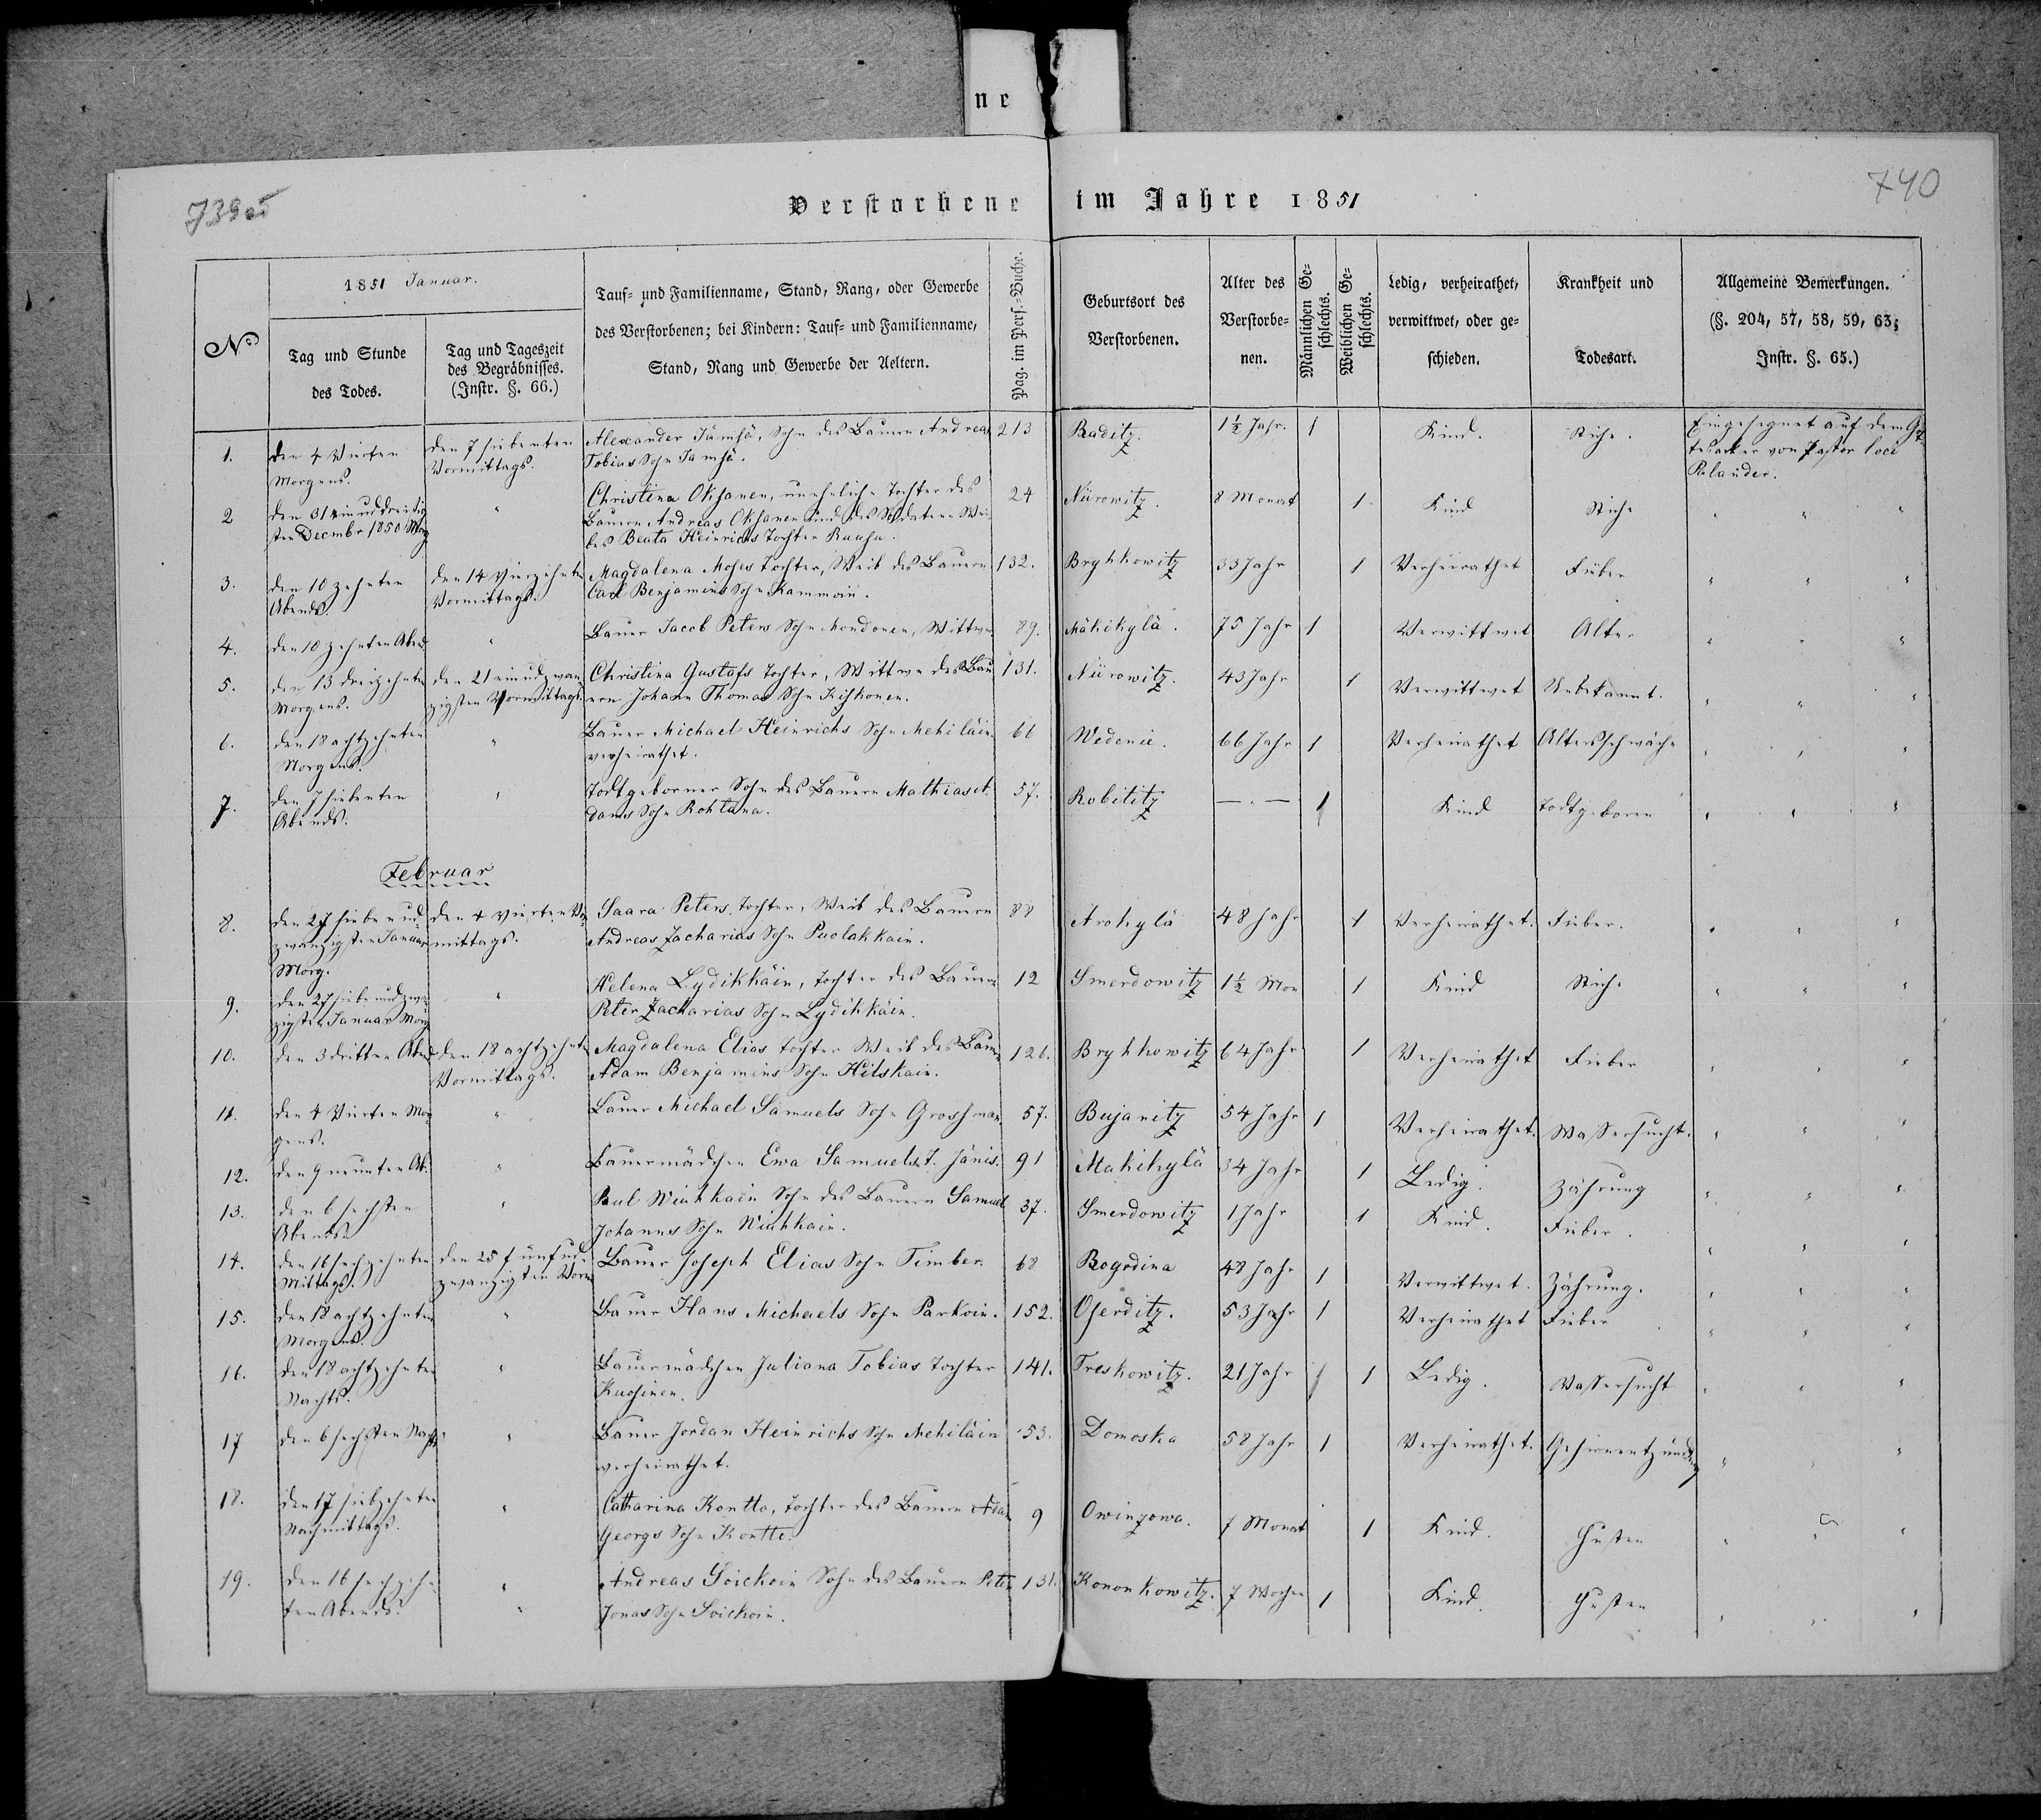 ne
739 os
740
Verstorbene im Jahre 1851
No
1851 Januar.
Tag und Stunde
des Todes.
Tag und Tageszeit
des Begräbnisses.
(Instr. §. 66.)
Tauf- und Familienname, Stand, Rang, oder Gewerbe
des Verstorbenen; bei Kindern: Tauf- und Familienname,
Stand, Rang und Gewerbe der Aeltern.
Pag. im Pers.-Buche.
Geburtsort des
Verstorbenen.
Alter des
Verstorbe-
nen.
Männlichen Ge-
schlechts.
Weiblichen Ge-
schlechts.
Ledig, verheirathet,
verwittwet, oder ge-
schieden.
Krankheit und
Todesart.
Allgemeine Bemerkungen.
(§. 204, 57, 58, 59, 63;
Instr. §. 65.)
1. den 4 vierten den 7 siebenten Alexander Jämsä, Sohn des Bauern Andreas 213 Raditz. 1½ Jahr. 1 Kind. Stiche. Eingesegnet auf dem Got-
Morgens. Vormittags. Tobias Sohn Jamsä. tesacker von Pastor loci
Palander.
2 den 31 einunddreißig- " Christina Oksanen, uneheliche Tochter des 24 Nürowitz. 8 Monat 1 Kind Stiche " " "
sten Decmbr 1850 Morg Bauern Andreas Oksanen und des Soldaten Wei-
bes Beata Heinrichs Tochter Rauha.
3. den 10 zehnten den 14 vierzehnten Magdalena Moses Tochter, Weib des Bauern 132. Bryhkowitz 33 Jahr 1 Verheirathet Fieber " " "
Abends. Vormittags. Carl Benjamins Sohn Kammoin.
4. den 10 zehnten Abend " Bauer Jacob Peters Sohn Mondonen, Wittwer 89. Mäkikylä. 75 Jahr 1 Verwittwet Alter " " "
5. den 13 dreizehnten den 21 einundzwan- Christina Gustafs Tochter, Wittwe des Bau- 131. Nürowitz. 43 Jahr 1 Verwittwet Unbekannt. " " "
Morgens. zigsten Vormittags. ern Johann Thomas Sohn Kihkonen.
6. den 18 achtzehnten " Bauer Michael Heinrichs Sohn Mehiläin 66 Wedenie. 66 Jahr 1 Verheirathet Altersschwäche " " "
Morgens. verheirathet.
7. den 7 siebenten " Todtgeborner Sohn des Bauern Mathias A- 57. Robititz — . — 1 Kind Todtgeboren " " "
Abends. dams Sohn Rohtuna.
Februar
8. den 27 siebenund- den 4 vierten Vor- Saara Peters Tochter, Weib des Bauern 88 Arokylä 48 Jahr 1 Verheirathet. Fieber. " " "
zwanzigsten Januar mittags. Andreas Zacharias Sohn Puolakkain.
Morg.
9. den 27 siebenundzwan- " Helena Lydikkäin, Tochter des Bauern 12 Smerdowitz 1½ Mon 1 Kind Stiche " " "
zigsten Januar Morg Peter Zacharias Sohn Lydikkäin.
10. den 3 dritten Abend den 18 achtzehnten Magdalena Elias Tochter Weib des Bauern 126. Bryhkowitz 64 Jahr 1 Verheirathet Fieber " " "
Vormittags. Adam Benjamins Sohn Hilskain.
11. den 4 vierten Mor- " Bauer Michael Samuels Sohn Grosman 57. Bujanitz 54 Jahr 1 Verheirathet. Wassersucht. " " "
gens.
12. den 9 neunten Ab. " Bauermädchen Ewa Samuels T. Jänis. 91 Makikylä 34 Jahr 1 Ledig. Zährung " " "
13. den 6 sechsten " Paul Wiahkain Sohn des Bauern Samuel 37. Smerdowitz 1 Jahr 1 Kind. Fieber. " " "
Abends. Johanns Sohn Wiahkain.
14. den 16 sechzehnten den 25 fünfund- Bauer Joseph Elias Sohn Timber. 68 Rogodina 48 Jahr 1 Verwittwet. Zährung. " " "
Mittags. zwanzigsten Vorm
15. den 18 achtzehnten " Bauer Hans Michaels Sohn Parkoin. 152. Oserditz. 53 Jahr 1 Verheirathet Fieber " " "
Morgens.
16. den 18 achtzehnten " Bauermädchen Juliana Tobias Tochter 141. Treskowitz. 21 Jahr 1 Ledig. Wassersucht " " "
Nachts. Kuosinen.
17 den 6 sechsten Nachts " Bauer Jordan Heinrichs Sohn Mehiläin 53. Domoska 58 Jahr 1 Verheirathet. Gehirnentzündung " " "
verheirathet.
18. den 17 siebzehnten " Catharina Kontto, Tochter des Bauern Adam 9 Owinzowa. 7 Monat 1 Kind. Husten " " "
Nachmittags. Georgs Sohn Kontto.
19. den 16 sechzehn- " Andreas Soickoin Sohn des Bauern Peter 131. Kononkowitz. 7 Wochen 1 Kind. Husten " " "
ten Abends. " Jonas Sohn Soickoin.